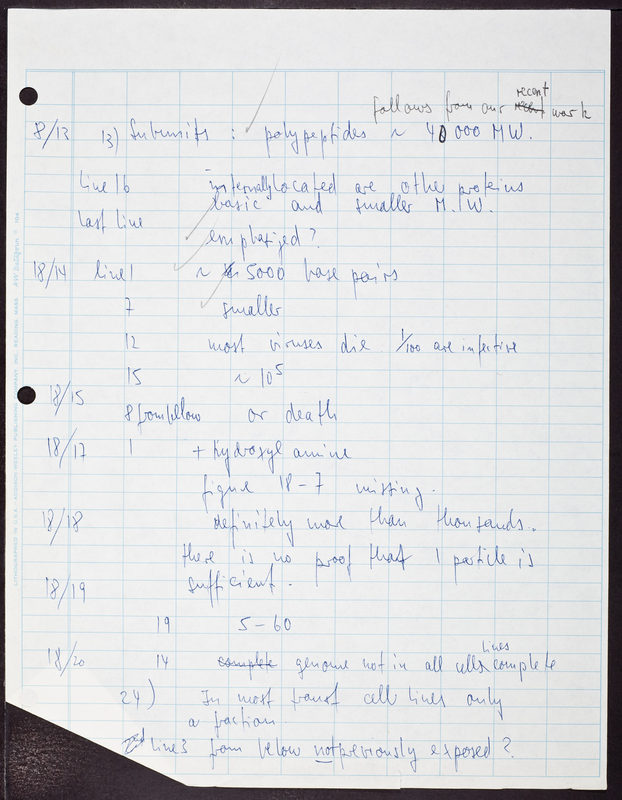 follows from our recent recent work
8/13 13) Subunits : polypeptides ~ 40 000 MW.
line 16 internally located are other proteins
basic and smaller M.W.
last line emphasized ?
18/14 line 1 ~ 5000 base pairs
7 smaller
12 most viruses die 1/100 are infective
15 ~ 10⁵
18/15
8 from below or death
18/17 1 + Hydroxyl amine
figure 18-7 missing.
18/18 definitely more than thousands.
there is no proof that 1 particle is
18/19 sufficient.
19 5-60
lines
18/20 14 complete genome not in all cells complete
24) In most transf cell lines only
a fraction.
line 3 from below not previously exposed ?